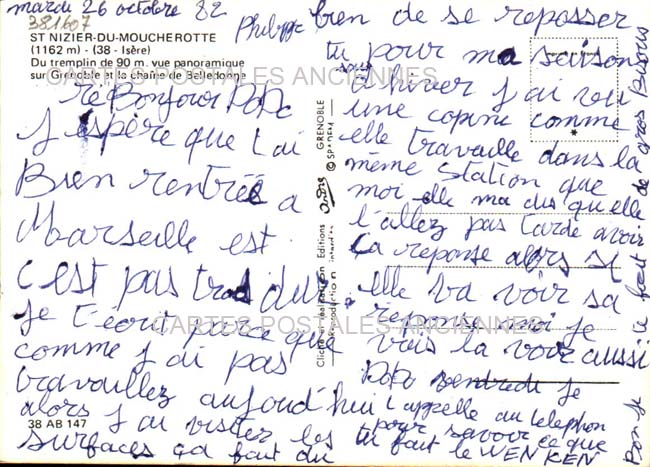 mardi 26 octobre 82
381607
ST NIZIER-DU-MOUCHEROTTE
(1162 m) - (38 - Isère)
Du tremplin de 90 m. vue panoramique
sur Grenoble et la chaîne de Belledonne
CARTES POSTALES ANCIENNES
re Bonjour PaPa
J espère que t ai
Bien rentrée a
Marseille est
c'est pas trop dur
Je t ecrit parce que
CARTES POSTALES ANCIENNES
comme J ai pas
travaillez aujourd'hui
alors J ai visiter les
38 AB 147
surfaces ça fait du
GRENOBLE
© SPADEM
André
Editions
Cliché et réalisation
Reproduction interdite
Philippe
bien de se reposser
tu pour ma saison
d hiver J ai vu
une copine comme
elle travaille dans la
même station que
moi elle ma dis qu elle
l'allez pas tarde avoir
ça reponse alors si
elle va voir sa
reponse moi je
vais la voir aussi
PaPa vendredi je
t appelle au telephon
pour savoir ce que
tu fait le WEN KEN
Bon je te fait de gros Bisous